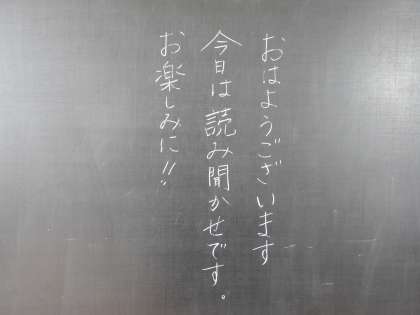 おはようございます
今日は読み聞かせです。
お楽しみに!!